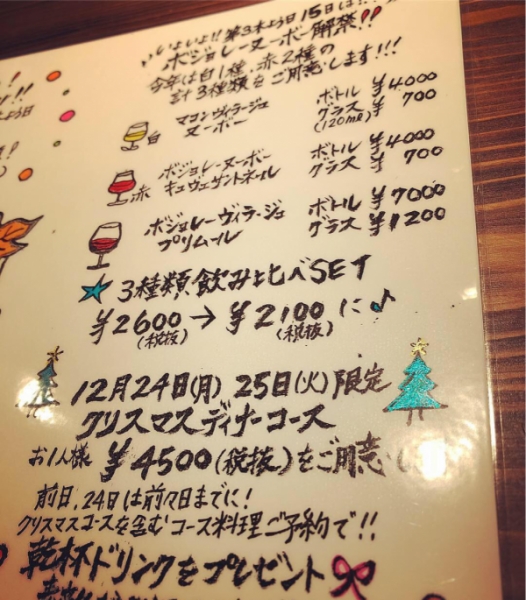 いよいよ!! 第3木よう日15日は!!
ボジョレーヌーボー解禁!!
今年は白1種、赤2種の
計3種類をご用意します!!!
白 マコンヴィラージュ ボトル ¥4000
ヌーボー グラス ¥700
(120ml)
赤 ボジョレーヌーボー ボトル ¥4000
キュヴェサントネール グラス ¥700
ボジョレーヴィラージュ ボトル ¥7000
プリムール グラス ¥1200
★3種類飲み比べSET
¥2600 → ¥2100 に♪
(税抜) (税抜)
12月24日(月) 25日(火) 限定
クリスマスディナーコース
お1人様 ¥4500(税抜)をご用意
前日、24日は前々日までに!
クリスマスコースを含むコース料理ご予約で!!
乾杯ドリンクをプレゼント